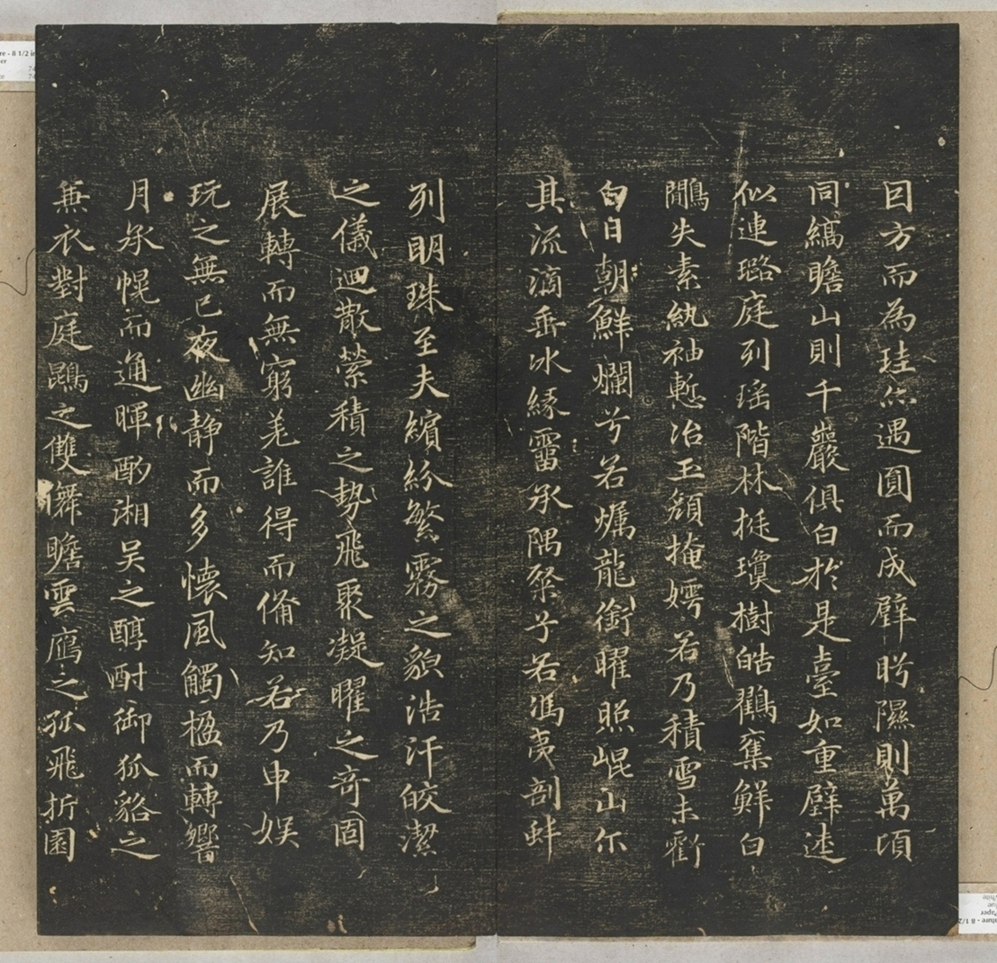 因方而為珪亦遇圓而成璧眄隰則萬頃
同縞瞻山則千巖俱白於是臺如重璧逵
似連璐庭列瑤階林挺瓊樹皓鸖奪鮮白
鷴失素紈袖慙冶玉顏掩嫮若乃積雪未虧
白日朝鮮爛兮若燭龍銜曜照崐山尓
其流滴垂冰緣霤承隅粲兮若馮夷剖蚌
列明珠至夫繽紛繁霧之貌浩汗皎潔
之儀迴散縈積之勢飛聚凝曜之奇固
展轉而無窮羌誰得而備知若乃申娛
玩之無已夜幽靜而多懷風觸楹而轉響
月承幌而通暉酌湘吳之醇酎御狐貉之
兼衣對庭鵾之雙舞瞻雲鴈之孤飛折園